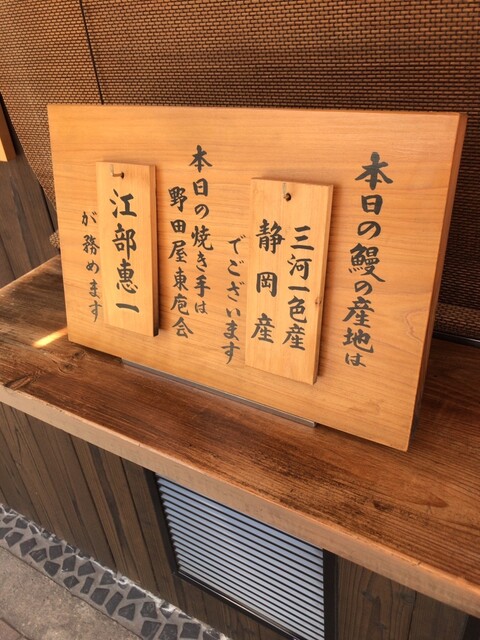 本日の鰻の産地は
三河一色産
静岡産
でございます
本日の焼き手は
野田屋東庖会
江部惠一
が務めます